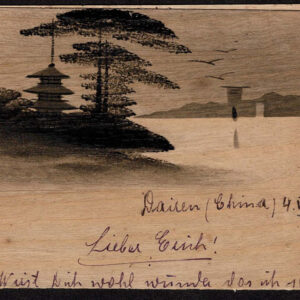 Dairen (China) 4.
Lieber Erich!
Wirst Dich wohl wundern das ich